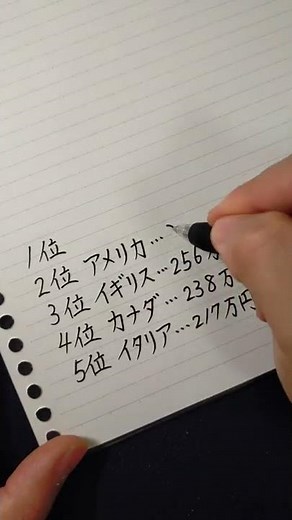 1位
2位 アメリカ…
3位 イギリス…256万
4位 カナダ…238万
5位 イタリア…217万円